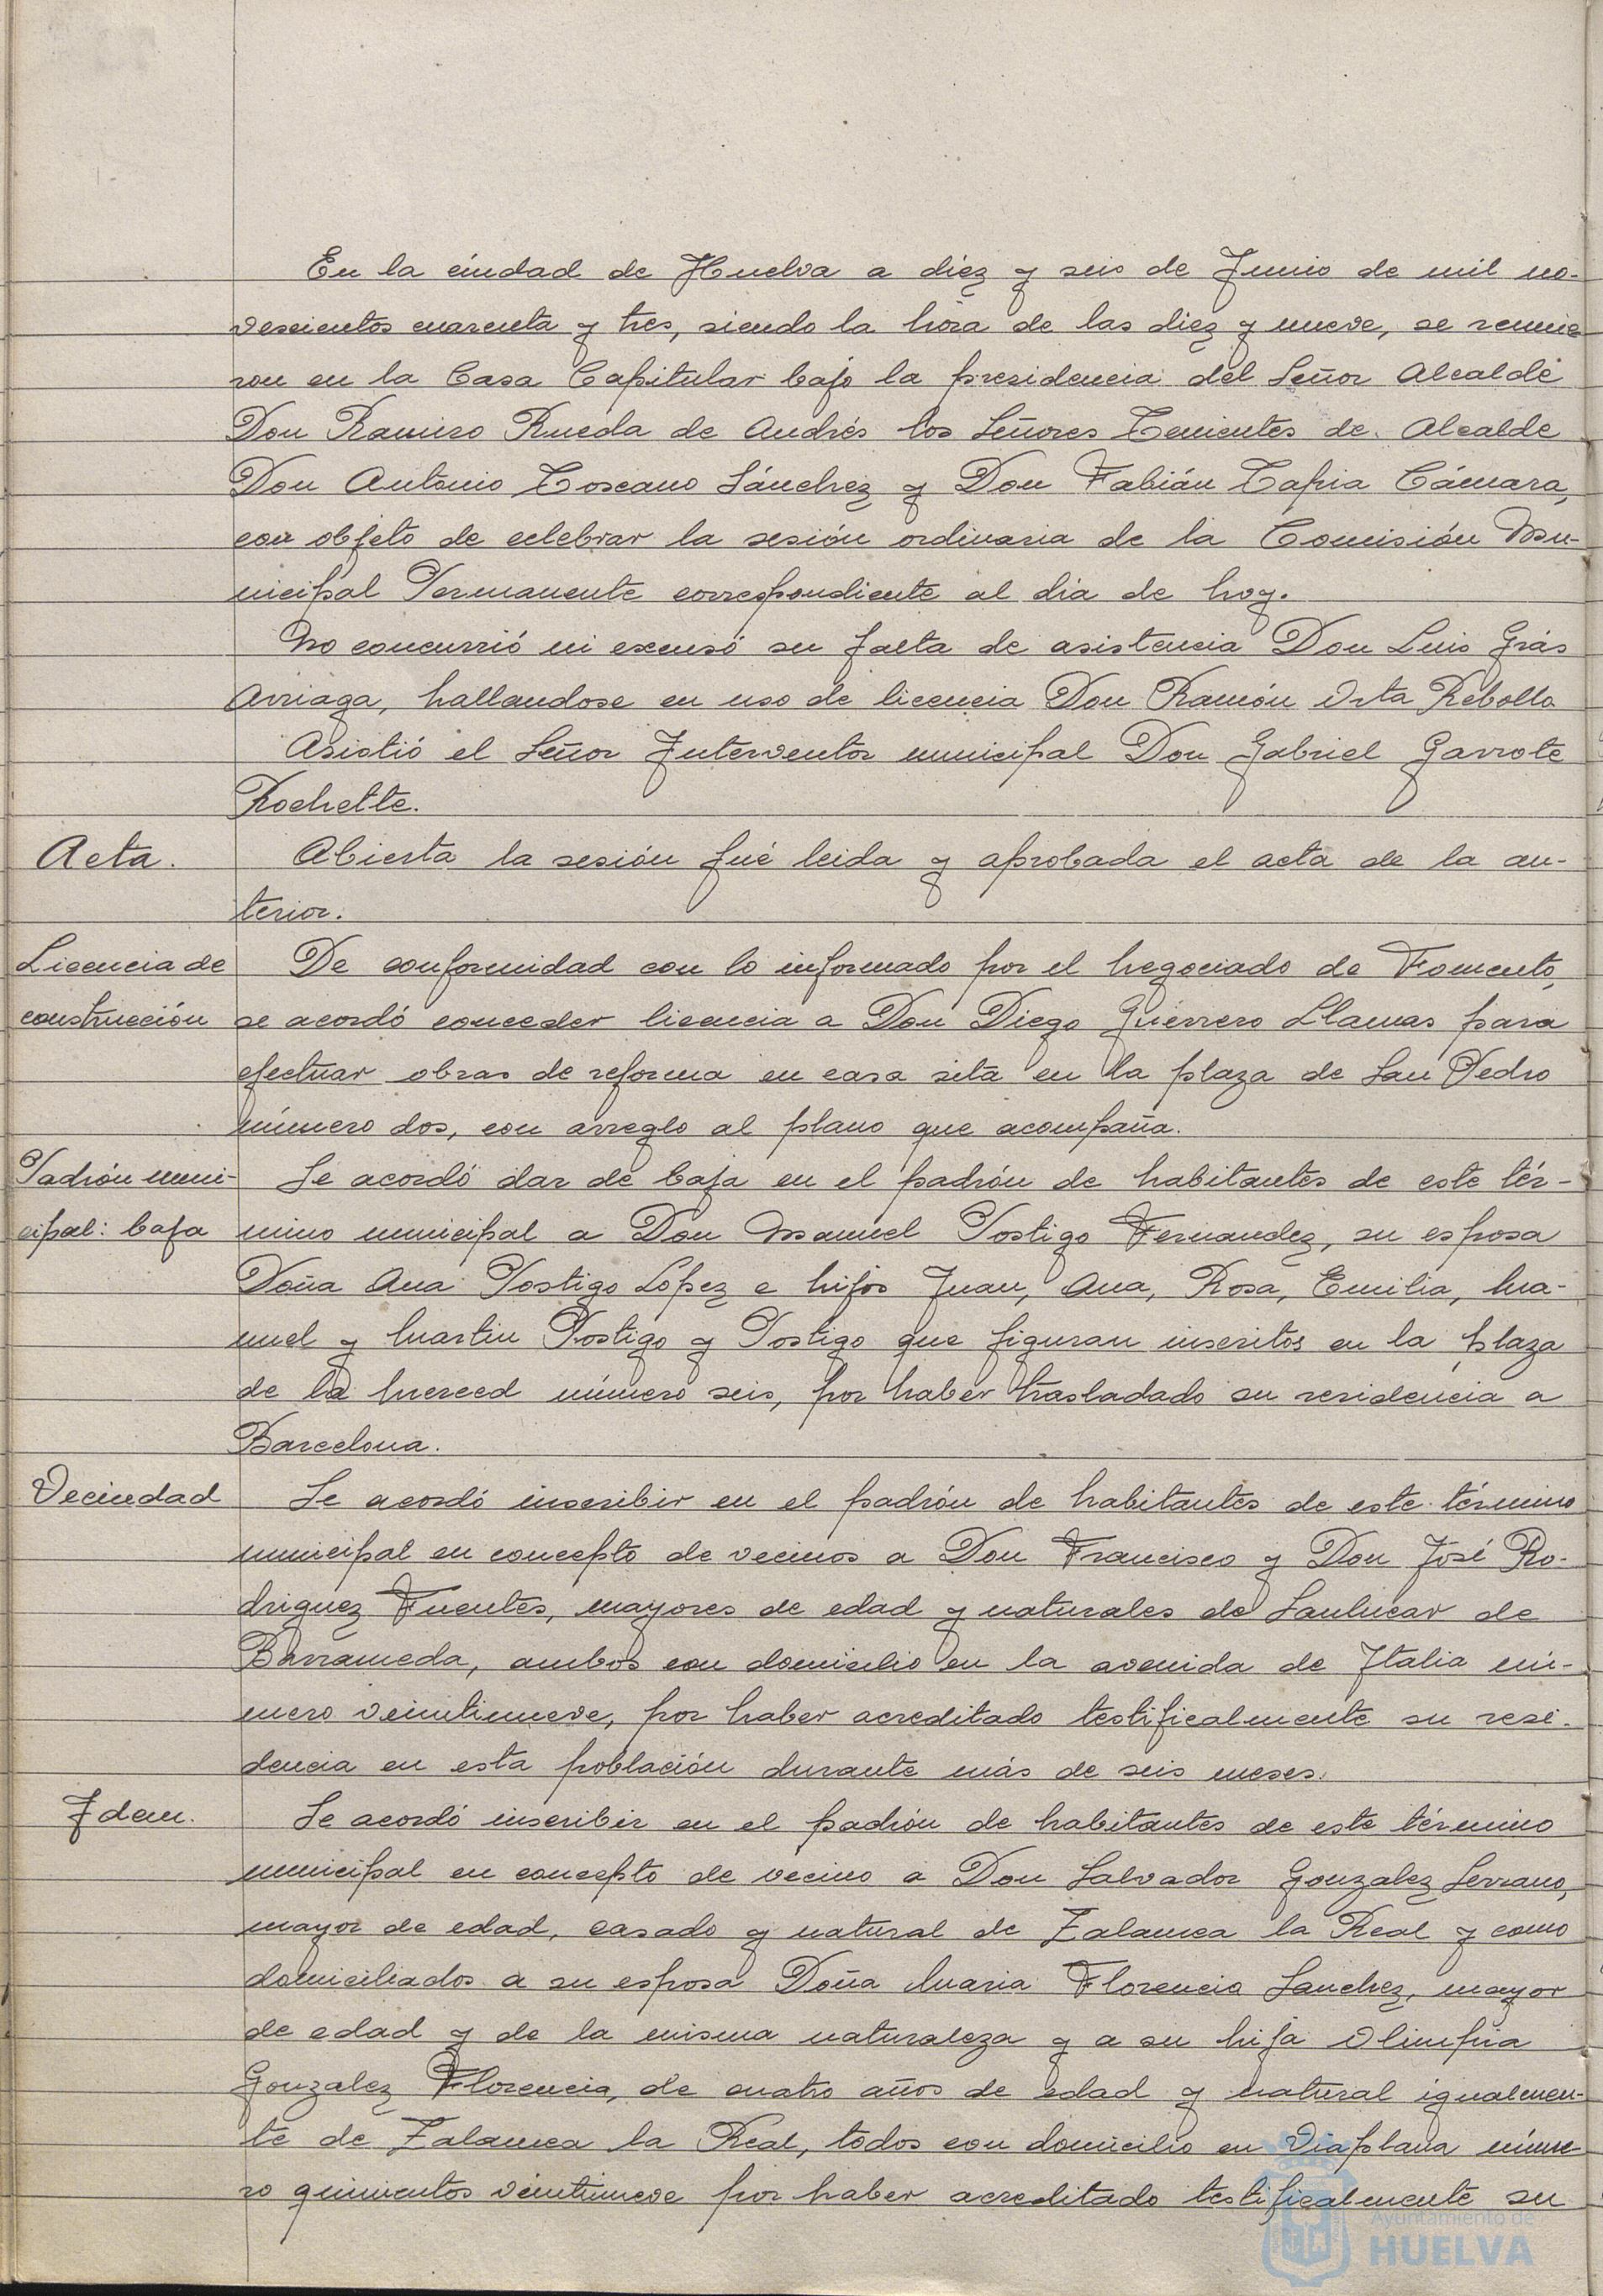 En la ciudad de Huelva a diez y seis de Junio de mil no-
vescientos cuarenta y tres, siendo la hora de las diez y nueve, se reunie
ron en la Casa Capitular bajo la presidencia del Señor Alcalde
Don Ramiro Rueda de Andrés los Señores Tenientes de Alcalde
Don Antonio Toscano Sánchez y Don Fabián Tapia Cámara,
con objeto de celebrar la sesión ordinaria de la Comisión Mu-
nicipal Permanente correspondiente al dia de hoy.
No concurrió ni excusó su falta de asistencia Don Luis Grás
Arriaga, hallandose en uso de licencia Don Ramón Orta Rebollo
Asistió el Señor Interventor municipal Don Gabriel Garrote
Rochette.
Acta. Abierta la sesión fué leida y aprobada el acta de la an-
terior.
Licencia de De conformidad con lo informado por el Negociado de Fomento,
construcción se acordó conceder licencia a Don Diego Guerrero Llamas para
efectuar obras de reforma en casa sita en la plaza de San Pedro
número dos, con arreglo al plano que acompaña.
Padrón muni- Se acordó dar de baja en el padrón de habitantes de este tér-
cipal: baja mino municipal a Don Manuel Postigo Fernandez, su esposa
Doña Ana Postigo López e hijos Juan, Ana, Rosa, Emilia, Ma-
nuel y Martin Postigo y Postigo que figuran inscritos en la plaza
de la Merced número seis, por haber trasladado su residencia a
Barcelona.
Vecindad Se acordó inscribir en el padrón de habitantes de este término
municipal en concepto de vecinos a Don Francisco y Don José Ro-
driguez Fuentes, mayores de edad y naturales de Sanlucar de
Barrameda, ambos con domicilio en la avenida de Italia nú-
mero veintinueve, por haber acreditado testificalmente su resi-
dencia en esta población durante más de seis meses.
Idem. Se acordó inscribir en el padrón de habitantes de este término
municipal en concepto de vecino a Don Salvador Gonzalez Serrano,
mayor de edad, casado y natural de Zalamea la Real y como
domiciliados a su esposa Doña Maria Florencia Sanchez, mayor
de edad y de la misma naturaleza y a su hija Olimpia
Gonzalez Florencia, de cuatro años de edad y natural igualmen-
te de Zalamea la Real, todos con domicilio en Viaplana núme-
ro quinientos veintinueve por haber acreditado testificalmente su
Ayuntamiento de
HUELVA